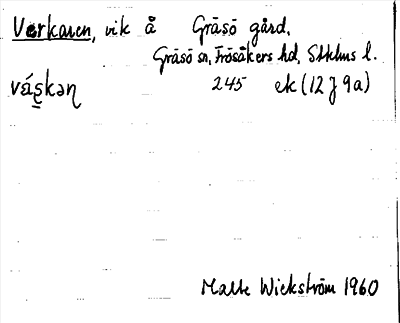 Verkaren, vik å Gräsö gård.
Gräsö sn, Frösåkers hd, Sthlms l.
váʂkəɳ 245 ek (12 J 9a)
Malte Wickström 1960